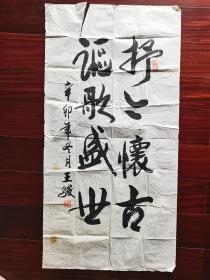 抒今懷古
謳歌盛世
辛卯年冬月王